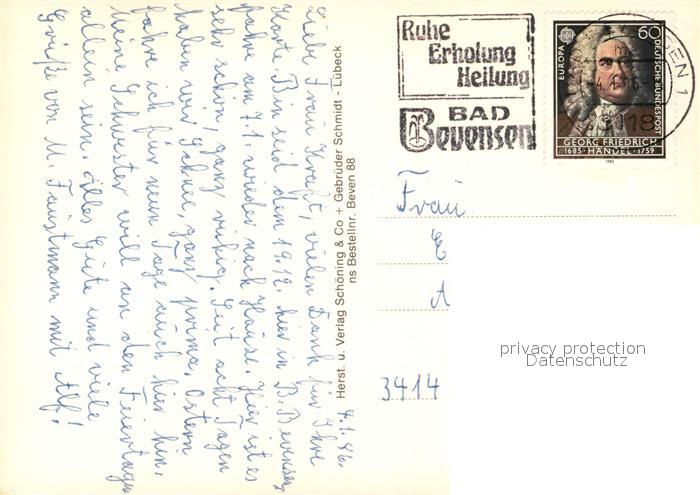 4.1.86.
Liebe Frau Kraft, vielen Dank für Ihre
Karte. Bin seid dem 19.12. hier in B. Bevensen,
fahre am 7.1. wieder nach Hause. Hier ist es
sehr schön, ganz ruhig. Seit acht Tagen
haben wir Schnee, ganz prima. Ostern
fahre ich für neun Tage auch hier hin.
Meine Schwester will an den Feiertagen
allein sein. Alles Gute und viele
Grüße von M. Faustmann mit Alf!
Herst. u. Verlag Schöning & Co + Gebrüder Schmidt - Lübeck
ns Bestellnr. Beven 88
Ruhe
Erholung
Heilung
BAD
Bevensen
EUROPA
60
DEUTSCHE BUNDESPOST
GEORG FRIEDRICH
1685 · HÄNDEL · 1759
1985
SEN 1
3118
Frau
E
A
3414
privacy protection
Datenschutz